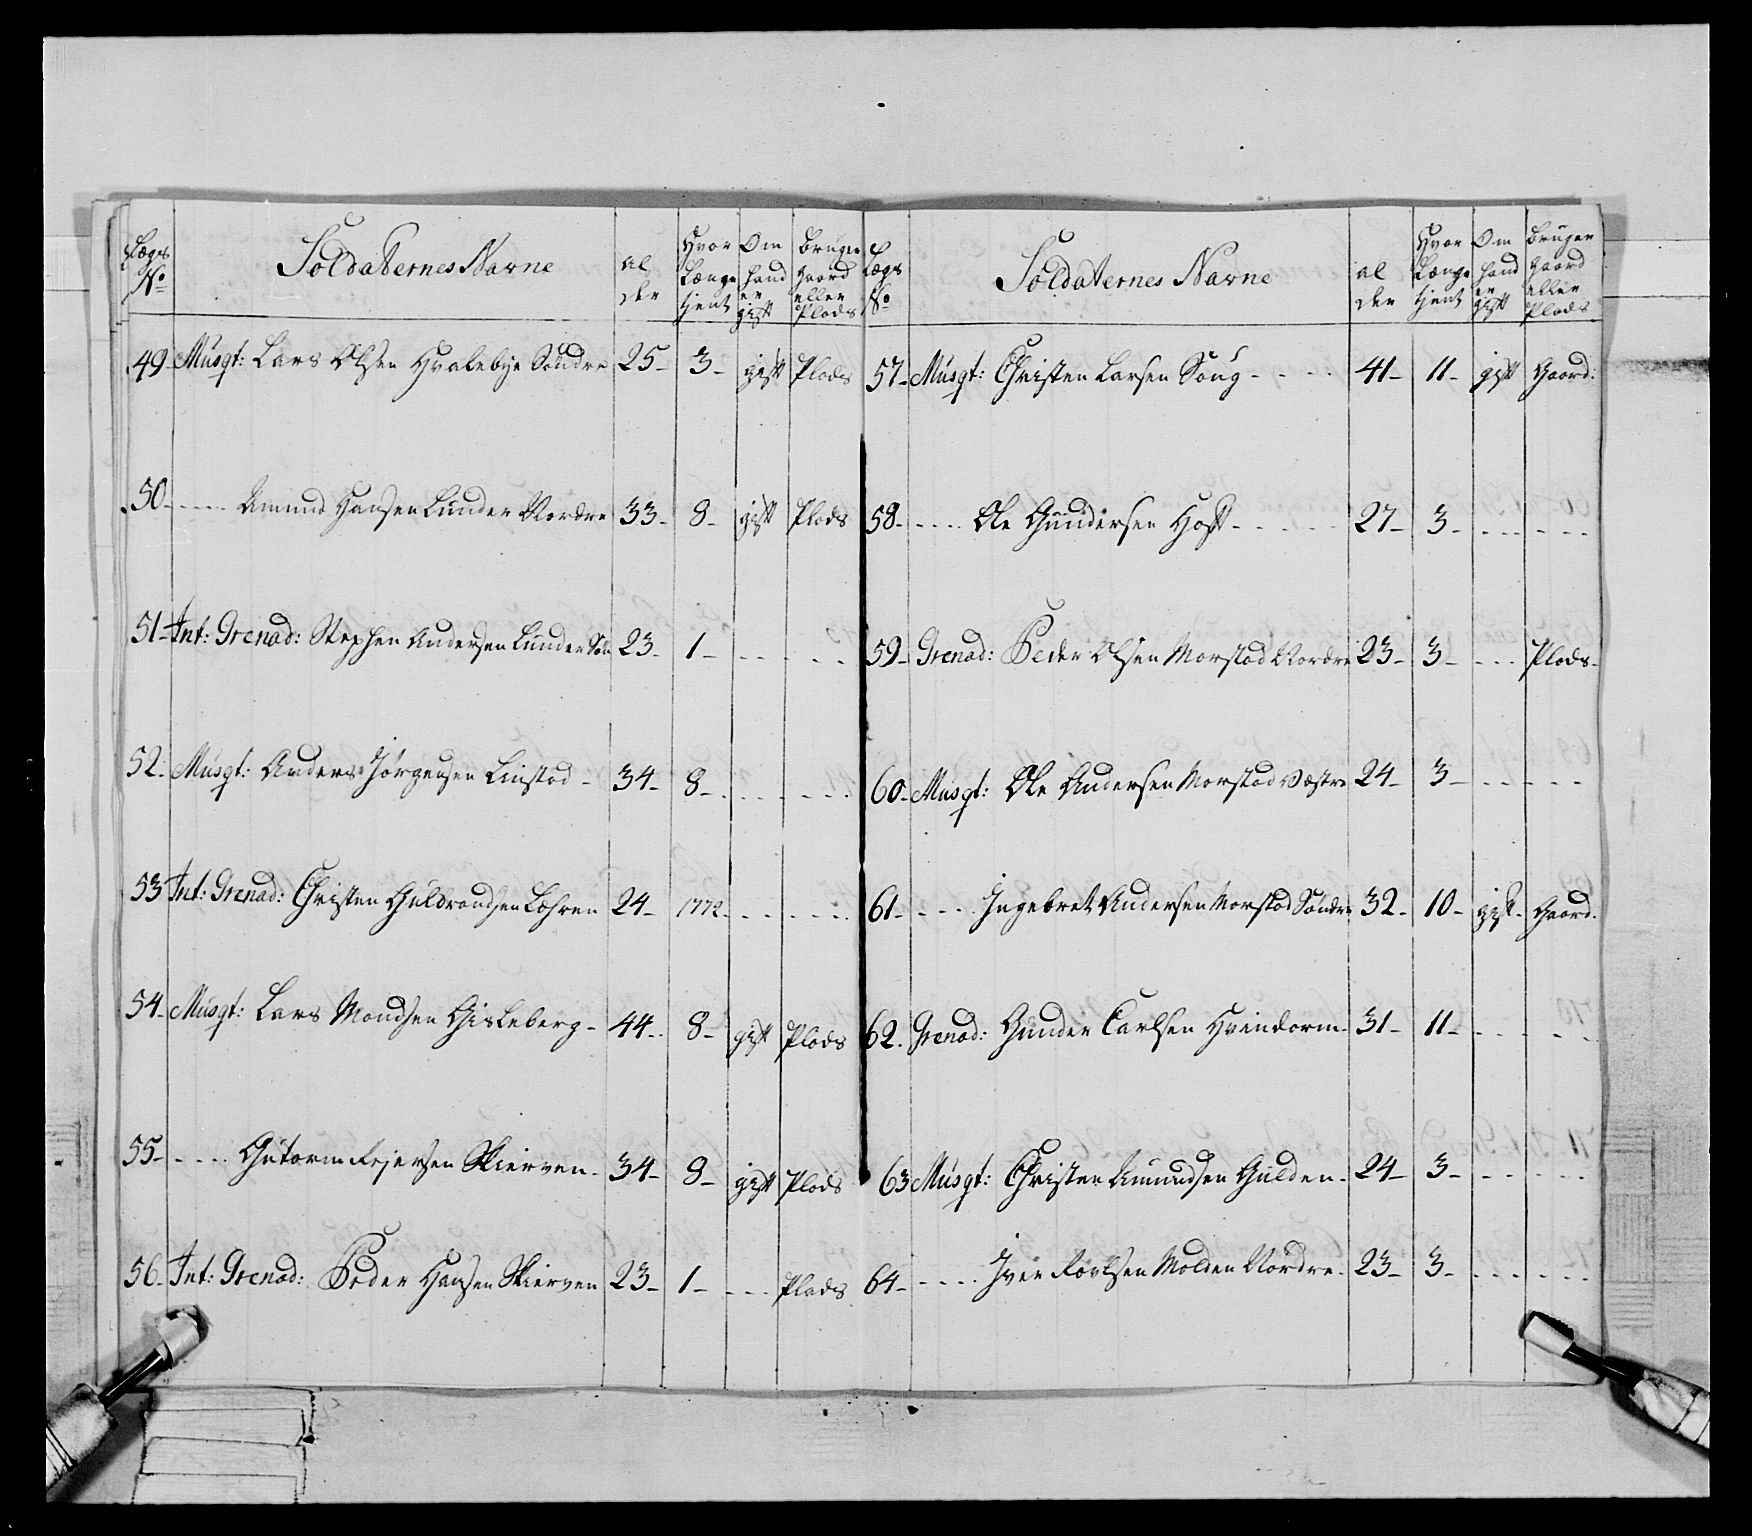 Lægs No Soldaternes Navne al der Hvor Længe tjent Om hand er gift Bruger Gaard eller Plads
49 Musqt: Lars Olsen Hvalebye Søndre 25 3 gift Plads
50 Amund Hansen Lunder Nordre 33 8 gift Plads
51 Int: Grenad: Stephen Andersen Lunder Sön 23 1
52 Musqt: Anders Jörgensen Linstad 34 8
53 Int: Grenad: Christen Guldrandsen Løhren 24 1772
54 Musqt: Lars Mondsen Gisleberg 44 8 gift Plads
55 Gutorm Rejersen Skierven 34 8 gift Plads
56 Int: Grenad: Peder Hansen Skierven 23 1 Plads
Lægs No Soldaternes Navne al der Hvor Længe tjent Om hand er gift Bruger Gaard eller Plads
57 Musqt: Christen Larsen Soug 41 11 gift Gaard:
58 Ole Gundersen Hoft 27 3
59 Grenad: Peder Olsen Morstad Nordre 23 3 Plads
60 Musqt: Ole Andersen Morstad Væstre 24 3
61 Ingebret Andersen Morstad Søndre 32 10 gift Gaard
62 Grenad: Gunder Carlsen Hvindorm 31 11
63 Musqt: Christen Amundsen Gulden 24 3
64 Iver Molden Nordre 23 3